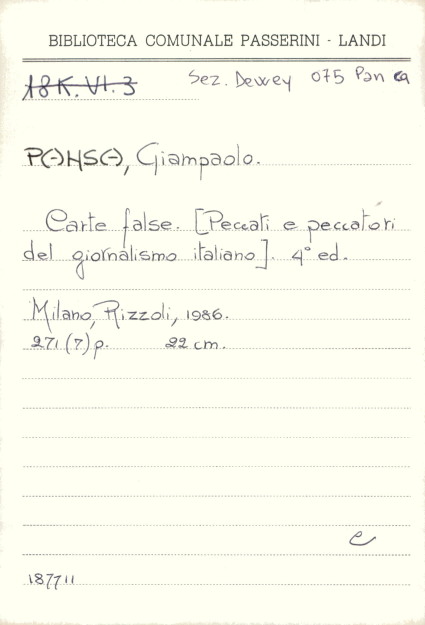 BIBLIOTECA COMUNALE PASSERINI - LANDI
18K.VI.3 Sez. Dewey 075 Pan ca
PANSA, Giampaolo.
Carte false. [Peccati e peccatori
del giornalismo italiano]. 4° ed.
Milano, Rizzoli, 1986.
271 (7) p. 22 cm.
e
187711